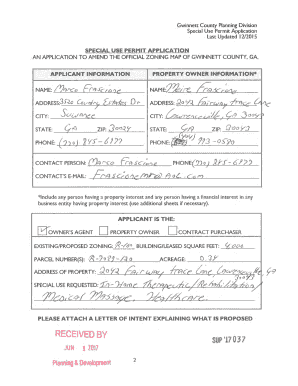 Gwinnett County Planning Division
Special Use Permit Application
Last Updated 12/2015
SPECIAL USE PERMIT APPLICATION
AN APPLICATION TO AMEND THE OFFICIAL ZONING MAP OF GWINNETT COUNTY, GA.
APPLICANT INFORMATION
PROPERTY OWNER INFORMATION*
NAME: Marco Frascione
NAME: Frascione
ADDRESS: 3520 Country Estates Dr
ADDRESS: 2042 Fairway trace Lane
CITY: Suwanee
CITY: Lawrenceville, GA
STATE: GA ZIP: 30024
STATE: GA ZIP: 30043
PHONE: (770) 845-6777
PHONE: 993-0580
CONTACT PERSON: Marco Frascione PHONE: (770) 845-6777
CONTACT'S E-MAIL: Frascionemp@aol.com
*Include any person having a property interest and any person having a financial interest in any
business entity having property interest (use additional sheets if necessary).
APPLICANT IS THE:
OWNER'S AGENT PROPERTY OWNER CONTRACT PURCHASER
EXISTING/PROPOSED ZONING: R-100 BUILDING/LEASED SQUARE FEET: 4,000
PARCEL NUMBER(S): R-7089-130 ACREAGE: 0.38
ADDRESS OF PROPERTY: 2042 Fairway trace Lane, Lawrenceville, Ga
SPECIAL USE REQUESTED: In-Home Therapeutic/Rehabilitation/
Medical Massage, Healthcare
PLEASE ATTACH A LETTER OF INTENT EXPLAINING WHAT IS PROPOSED
RECEIVED BY
JUN 2017
SUP '17 037
Planning & Development
2